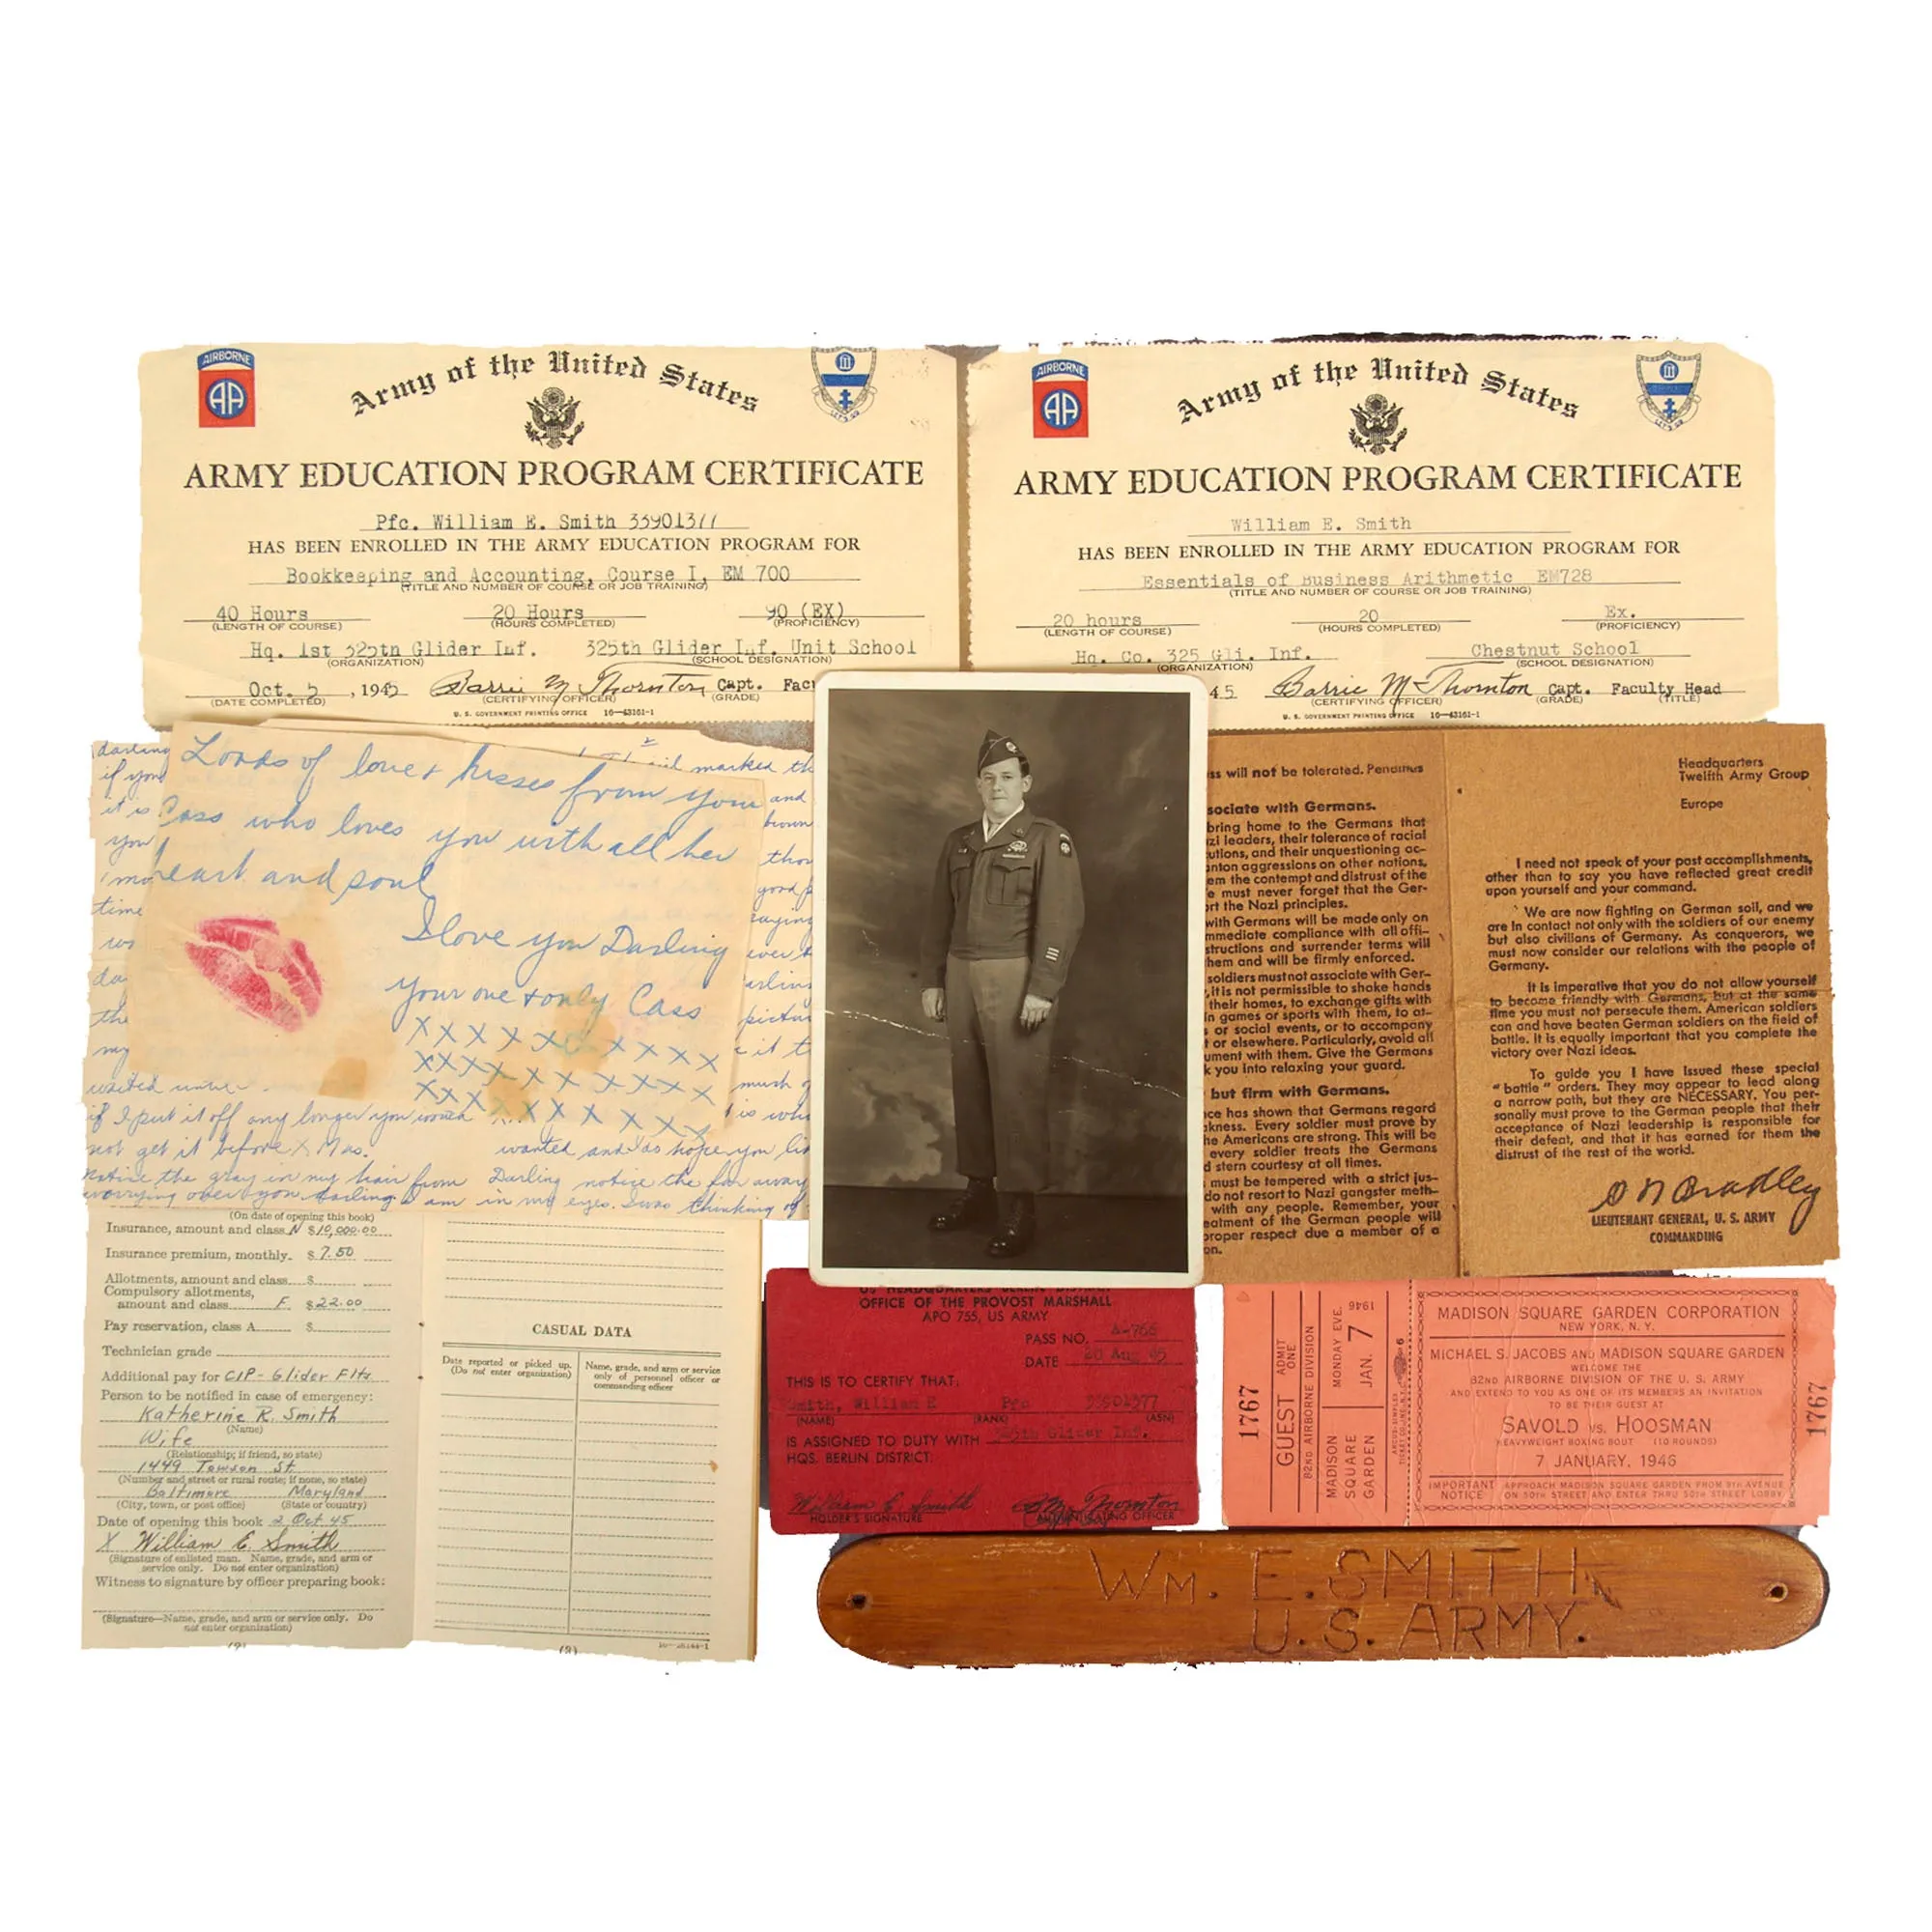 AIRBORNE
AA
Army of the United States
ARMY EDUCATION PROGRAM CERTIFICATE
Pfc. William E. Smith 33901377
HAS BEEN ENROLLED IN THE ARMY EDUCATION PROGRAM FOR
Bookkeeping and Accounting, Course I, EM 700
(TITLE AND NUMBER OF COURSE OR JOB TRAINING)
40 Hours 20 Hours 90 (EX)
(LENGTH OF COURSE) (HOURS COMPLETED) (PROFICIENCY)
Hq. 1st 325th Glider Inf. 325th Glider Inf. Unit School
(ORGANIZATION) (SCHOOL DESIGNATION)
Oct. 5, 1945 Barrie M Thornton Capt. Fac
(DATE COMPLETED) (CERTIFYING OFFICER) (GRADE)
U. S. GOVERNMENT PRINTING OFFICE 16—43161-1
AIRBORNE
AA
Army of the United States
LET'S GO
ARMY EDUCATION PROGRAM CERTIFICATE
William E. Smith
HAS BEEN ENROLLED IN THE ARMY EDUCATION PROGRAM FOR
Essentials of Business Arithmetic EM728
(TITLE AND NUMBER OF COURSE OR JOB TRAINING)
20 hours 20 Ex.
(LENGTH OF COURSE) (HOURS COMPLETED) (PROFICIENCY)
Hq. Co. 325 Gli. Inf. Chestnut School
(ORGANIZATION) (SCHOOL DESIGNATION)
45 Barrie M Thornton Capt. Faculty Head
(CERTIFYING OFFICER) (GRADE) (TITLE)
U. S. GOVERNMENT PRINTING OFFICE 16—43161-1
Loads of love + kisses from your
Cass who loves you with all her
heart and soul
I love you Darling
Your one + only Cass
X X X X X X X X X X
X X X X X X X X X X
X X X X X X X X X X
darling
if you
it is
you
time
da
the
my
marked the
and
brown
good
saying
ever
darling
picture
it
much
is
waited
if I put it off any longer you
not get it before X Mas.
wanted and do hope you
notice the gray in my hair from
worrying over you darling
Darling notice the far away
am in my eyes. I was thinking of
(On date of opening this book)
Insurance, amount and class N $10,000.00
Insurance premium, monthly. $ 7.50
Allotments, amount and class $
Compulsory allotments,
amount and class F $22.00
Pay reservation, class A $
Technician grade
Additional pay for CIP - Glider Flts
Person to be notified in case of emergency:
Katherine R. Smith
(Name)
Wife
(Relationship; if friend, so state)
1449 Towson St
(Number and street or rural route; if none, so state)
Baltimore Maryland
(City, town, or post office) (State or country)
Date of opening this book 2 Oct 45
X William E. Smith
(Signature of enlisted man. Name, grade, and arm or
service only. Do not enter organization)
Witness to signature by officer preparing book:
(Signature—Name, grade, and arm or service only. Do
not enter organization)
CASUAL DATA
Date reported or picked up.
(Do not enter organization)
Name, grade, and arm or service
only of personnel officer or
commanding officer
ss will not be tolerated.
sociate with Germans.
bring home to the Germans that
zi leaders, their tolerance of racial
utions, and their unquestioning ac-
anton aggressions on other nations,
em the contempt and distrust of the
e must never forget that the Ger-
rt the Nazi principles.
with Germans will be made only on
mmediate compliance with all offi-
structions and surrender terms will
hem and will be firmly enforced.
soldiers must not associate with Ger-
, it is not permissible to shake hands
their homes, to exchange gifts with
n games or sports with them, to at-
s or social events, or to accompany
t or elsewhere. Particularly, avoid all
ument with them. Give the Germans
k you into relaxing your guard.
but firm with Germans.
ce has shown that Germans regard
kness. Every soldier must prove by
he Americans are strong. This will be
every soldier treats the Germans
d stern courtesy at all times.
must be tempered with a strict jus-
do not resort to Nazi gangster meth-
with any people. Remember, your
eatment of the German people will
proper respect due a member of a
on.
Headquarters
Twelfth Army Group
Europe
I need not speak of your past accomplishments,
other than to say you have reflected great credit
upon yourself and your command.
We are now fighting on German soil, and we
are in contact not only with the soldiers of our enemy
but also civilians of Germany. As conquerors, we
must now consider our relations with the people of
Germany.
It is imperative that you do not allow yourself
to become friendly with Germans, but at the same
time you must not persecute them. American soldiers
can and have beaten German soldiers on the field of
battle. It is equally important that you complete the
victory over Nazi ideas.
To guide you I have issued these special
"battle" orders. They may appear to lead along
a narrow path, but they are NECESSARY. You per-
sonally must prove to the German people that their
acceptance of Nazi leadership is responsible for
their defeat, and that it has earned for them the
distrust of the rest of the world.
O N Bradley
LIEUTENANT GENERAL, U. S. ARMY
COMMANDING
US HEADQUARTERS BERLIN DISTRICT
OFFICE OF THE PROVOST MARSHALL
APO 755, US ARMY
PASS NO. A-766
DATE 20 Aug 45
THIS IS TO CERTIFY THAT:
Smith, William E Pfc 33901377
(NAME) (RANK) (ASN)
IS ASSIGNED TO DUTY WITH 325th Glider Inf.
HQS. BERLIN DISTRICT.
William E. Smith
HOLDER'S SIGNATURE
Thornton
OFFICER
1767
GUEST
ADMIT
ONE
82ND AIRBORNE DIVISION
MADISON
SQUARE
GARDEN
MONDAY EVE.
JAN. 7
1946
MADISON SQUARE GARDEN CORPORATION
NEW YORK, N. Y.
MICHAEL S. JACOBS AND MADISON SQUARE GARDEN
WELCOME THE
82ND AIRBORNE DIVISION OF THE U. S. ARMY
AND EXTEND TO YOU AS ONE OF ITS MEMBERS AN INVITATION
TO BE THEIR GUEST AT
SAVOLD VS. HOOSMAN
HEAVYWEIGHT BOXING BOUT (10 ROUNDS)
7 JANUARY, 1946
IMPORTANT NOTICE
APPROACH MADISON SQUARE GARDEN FROM 9TH AVENUE
ON 50TH STREET AND ENTER THRU 50TH STREET LOBBY
1767
WM. E. SMITH
U.S. ARMY.